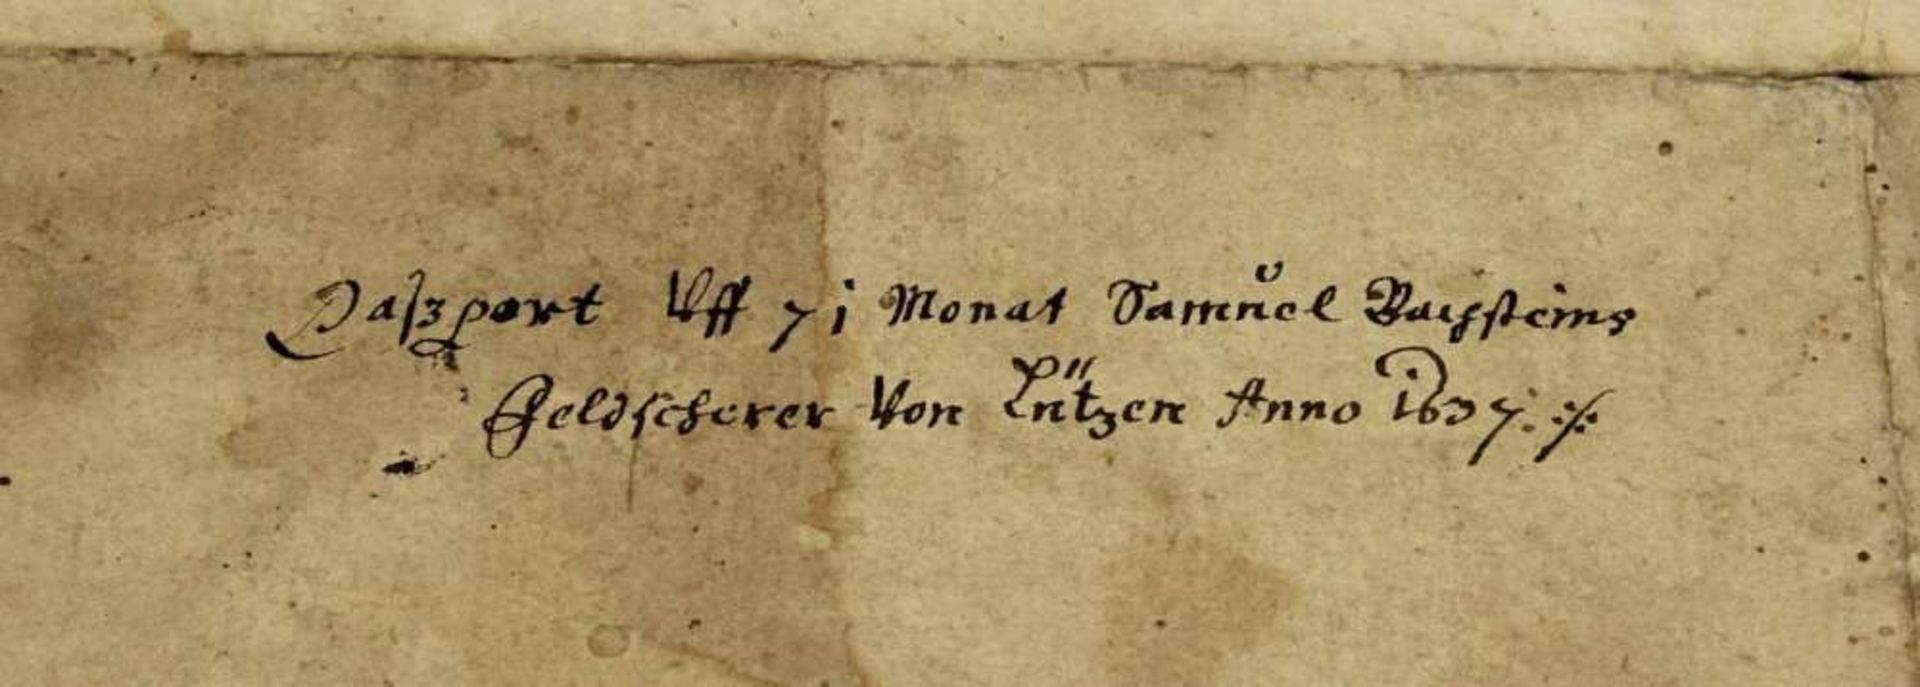 Paßport Vff 71 Monat Samuel Bachsteins
Feldscherer Von Lützen Anno 1637. ·/.